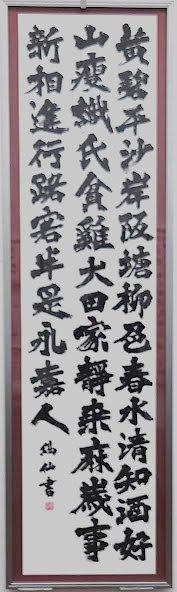 黃碧平沙岸陂塘柳色春水清知酒好
山瘦識民貧雞犬田家靜桒麻歲事
新相逢行路客半是永嘉人
仙書